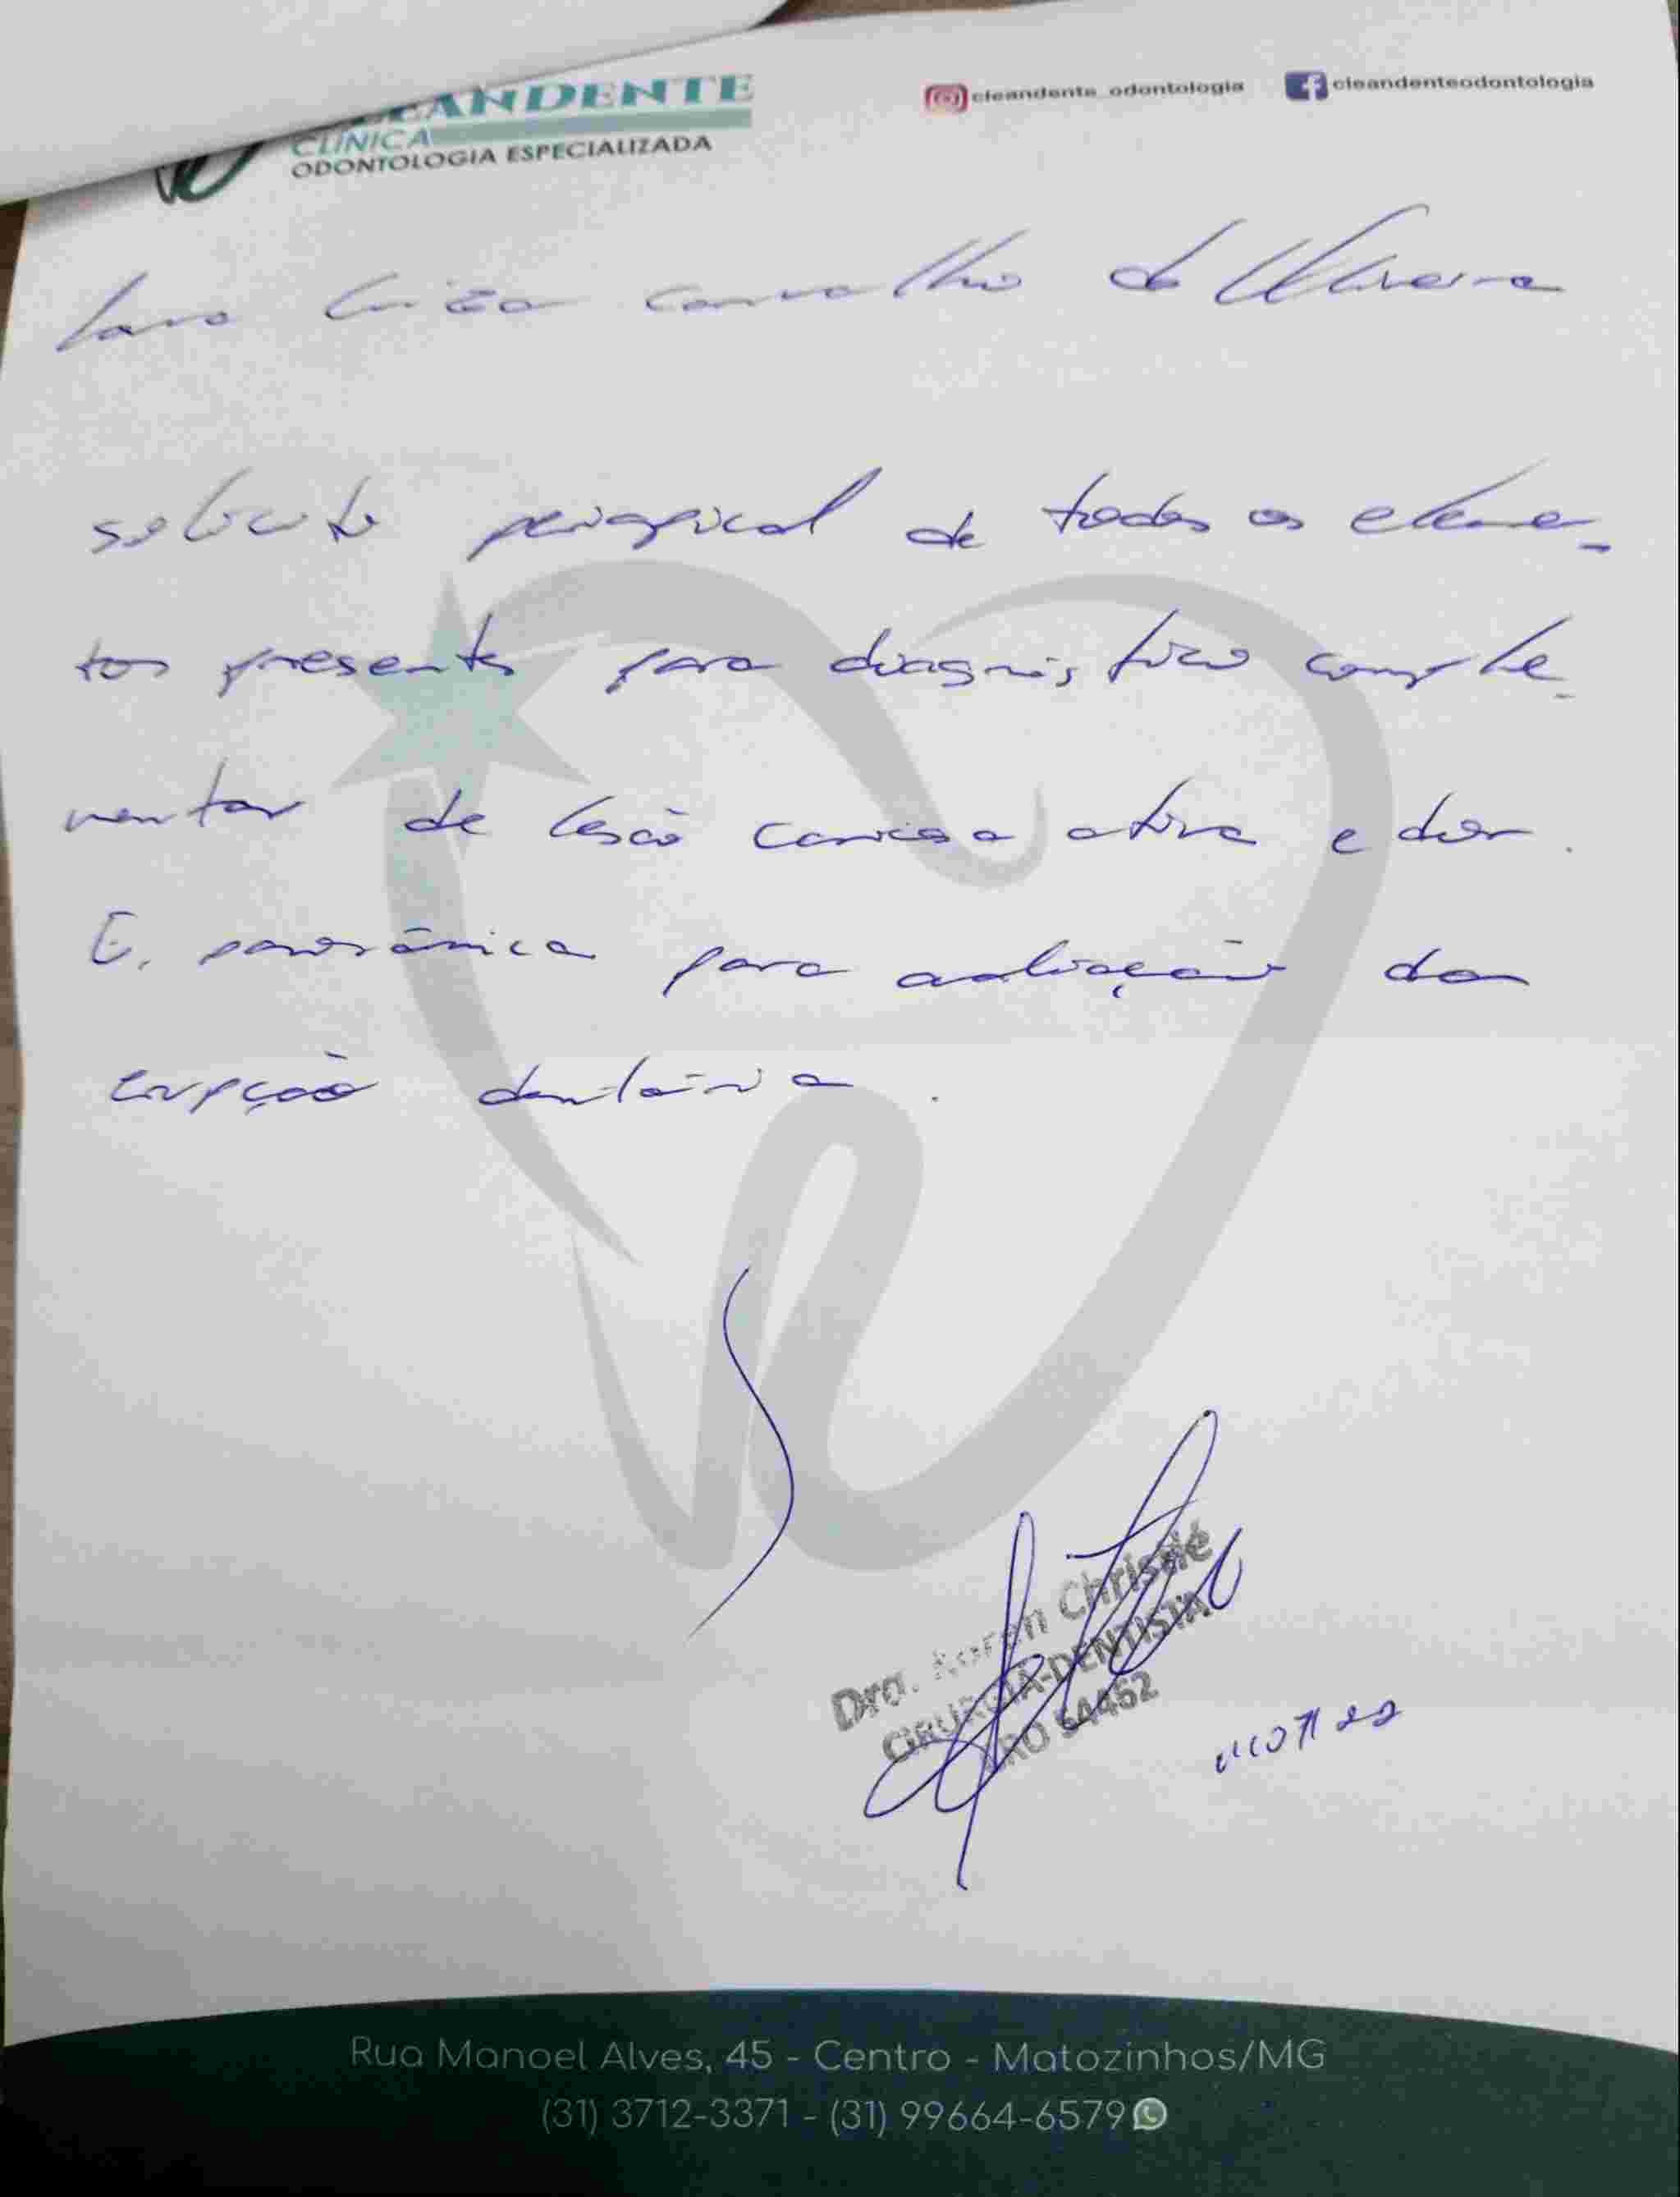 EANDENTE
CLÍNICA
ODONTOLOGIA ESPECIALIZADA
cleandente_odontologia
cleandenteodontologia
Luiza Carvalho de Oliveira
solicito periapical de todos os elemen-
tos presentes para diagnóstico comple-
mentar de lesão cariosa ativa e dor.
E, panorâmica para avaliação da
erupção dentária.
Dra. Karen Christie
CIRURGIÃ-DENTISTA
CRO 54462
Rua Manoel Alves, 45 - Centro - Matozinhos/MG
(31) 3712-3371 - (31) 99664-6579